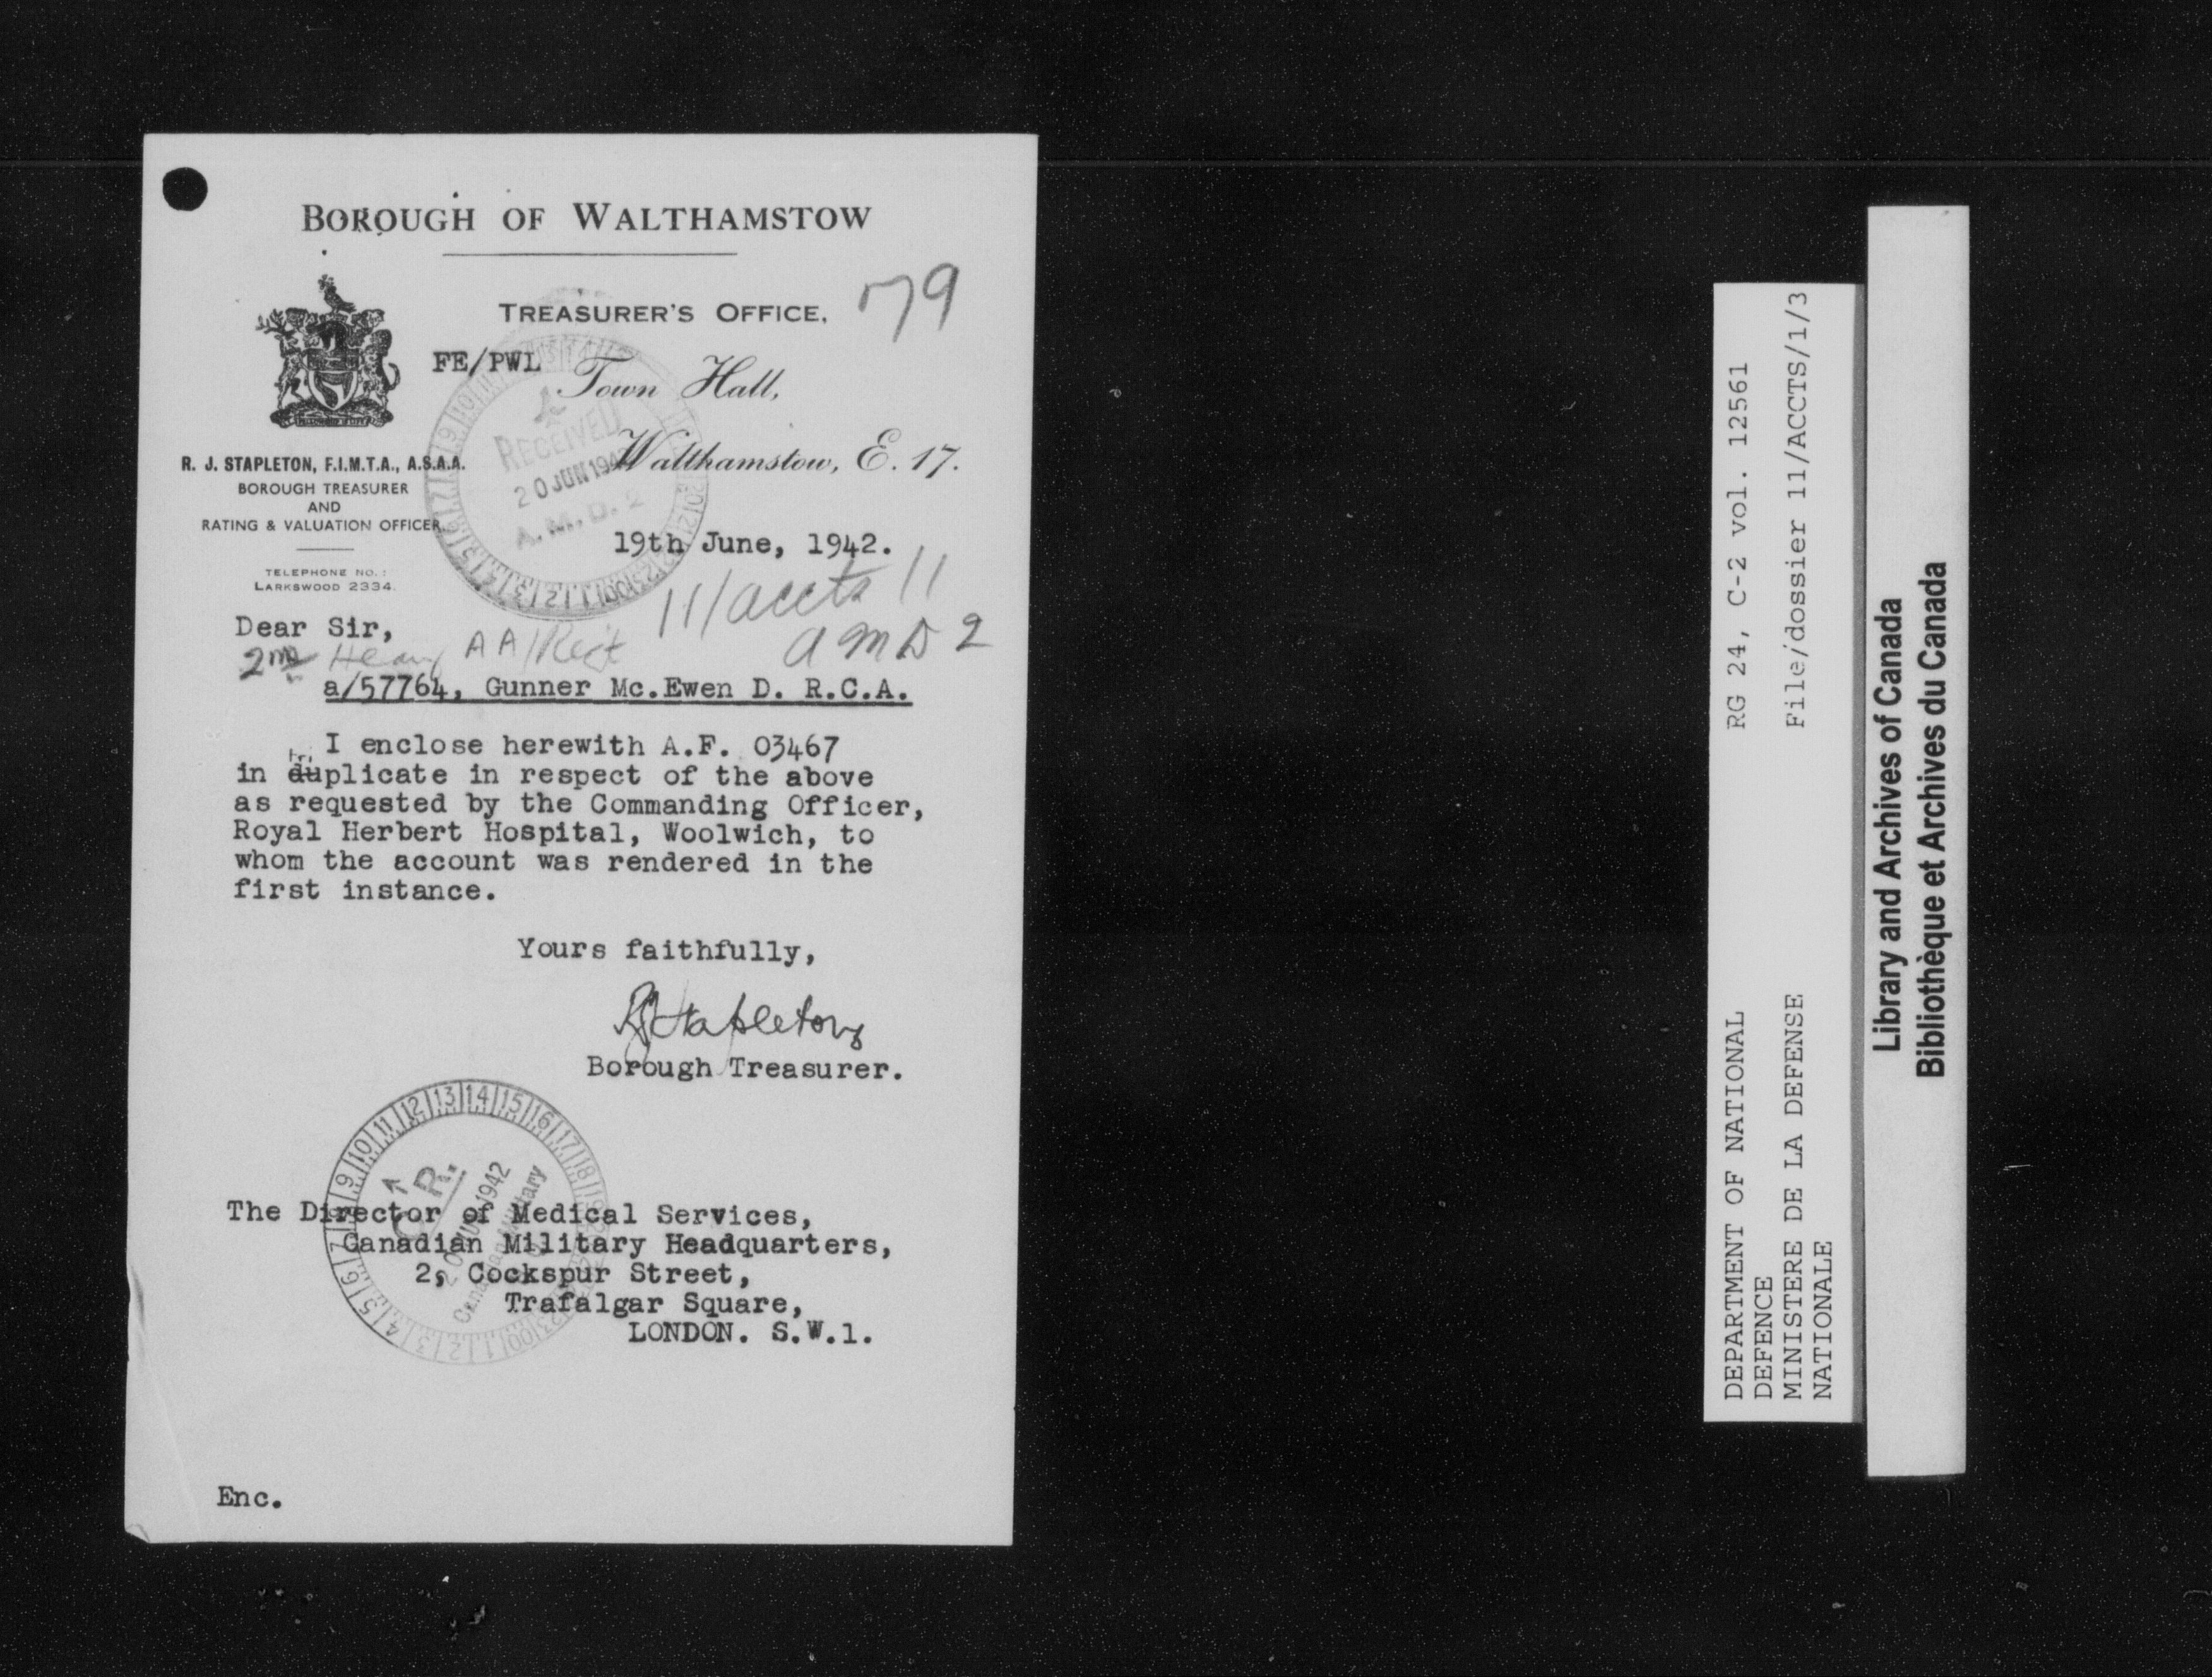 BOROUGH OF WALTHAMSTOW
TREASURER'S OFFICE,
79
FE/PWL
Town Hall,
Walthamstow, E. 17.
R. J. STAPLETON, F.I.M.T.A., A.S.A.A.
BOROUGH TREASURER
AND
RATING & VALUATION OFFICER.
TELEPHONE NO.:
LARKSWOOD 2334.
RECEIVED
20 JUN 194
A.M.D. 2
19th June, 1942.
11/accts 11
AMD 2
Dear Sir,
2nd Heavy AA/Regt
a/57764, Gunner Mc.Ewen D. R.C.A.
I enclose herewith A.F. 03467
tri
in duplicate in respect of the above
as requested by the Commanding Officer,
Royal Herbert Hospital, Woolwich, to
whom the account was rendered in the
first instance.
Yours faithfully,
RJStapleton
Borough Treasurer.
C.R.
20 JUN 1942
Canadian Military
The Director of Medical Services,
Canadian Military Headquarters,
2, Cockspur Street,
Trafalgar Square,
LONDON. S.W.1.
Enc.
RG 24, C-2 vol. 12561
File/dossier 11/ACCTS/1/3
DEPARTMENT OF NATIONAL
DEFENCE
MINISTERE DE LA DEFENSE
NATIONALE
Library and Archives of Canada
Bibliothèque et Archives du Canada